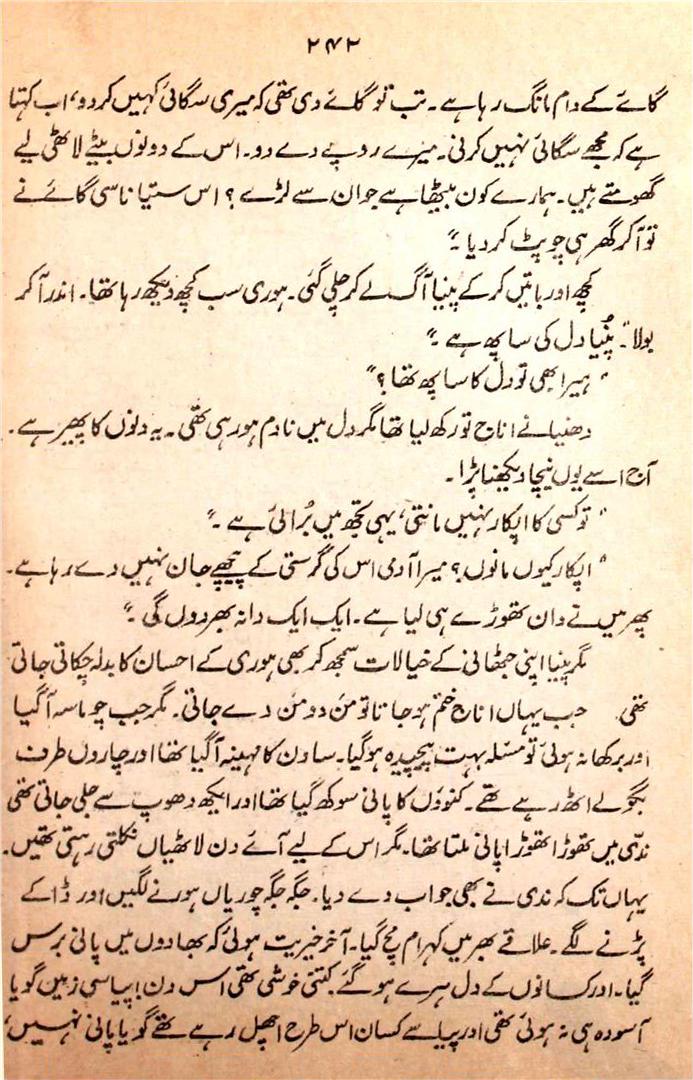 ۲۴۲
گائے کے دام مانگ رہا ہے۔ تب تو گائے دی تھی کہ میری سگائی کہیں کردو، اب کہتا
ہے کہ مجھے سگائی نہیں کرنی۔ میرے روپے دے دو۔ اس کے دونوں بیٹے لاٹھی لیے
گھومتے ہیں۔ ہمارے کون بیٹھا ہے جو ان سے لڑے؟ اس ستیاناسی گائے نے
تو آکر گھر ہی چوپٹ کر دیا۔"
کچھ اور باتیں کرکے پنیا آگ لے کر چلی گئی۔ ہوری سب کچھ دیکھ رہا تھا۔ اندر آکر
بولا "۔ پُنیا دل کی ساپھ ہے۔"
" ہیرا بھی تو دل کا ساپھ تھا؟"
دھنیا نے اناج تو رکھ لیا تھا مگر دل میں نادم ہو رہی تھی۔ یہ دنوں کا پھیر ہے۔
آج اسے یوں نیچا دیکھنا پڑا۔
" تو کسی کا اپکار نہیں مانتی، یہی تجھ میں بُرائی ہے۔"
" اپکار کیوں مانوں؟ میرا آدمی اس کی گرستی کے پیچھے جان نہیں دے رہا ہے۔
پھر میں نے دان تھوڑے ہی لیا ہے۔ ایک ایک دانہ بھردوں گی۔"
مگر پنیا اپنی جٹھانی کے خیالات سمجھ کر بھی ہوری کے احسان کا بدلہ چکاتی جاتی
تھی۔ جب یہاں اناج ختم ہو جاتا تو من دو من دے جاتی۔ مگر جب چوماسہ آگیا
اور برکھا نہ ہوئی تو مسئلہ بہت پیچیدہ ہوگیا۔ ساون کا مہینہ آگیا تھا اور چاروں طرف
بگولے اٹھ رہے تھے۔ کنوؤں کا پانی سوکھ گیا تھا اور ایکھ دھوپ سے جلی جاتی تھی
ندی میں تھوڑا تھوڑا پانی ملتا تھا۔ مگر اس کے لیے آئے دن لاٹھیاں نکلتی رہتی تھیں۔
یہاں تک کہ ندی نے بھی جواب دے دیا۔ جگہ جگہ چوریاں ہونے لگیں اور ڈاکے
پڑنے لگے۔ علاقے بھر میں کہرام مچ گیا۔ آخر خیریت ہوئی کہ بھادوں میں پانی برس
گیا۔ اور کسانوں کے دل ہرے ہوگئے۔ کتنی خوشی تھی اس دن! پیاسی زمین گویا
آسودہ ہی نہ ہوئی تھی اور پیاسے کسان اس طرح اچھل رہے تھے گویا پانی نہیں،